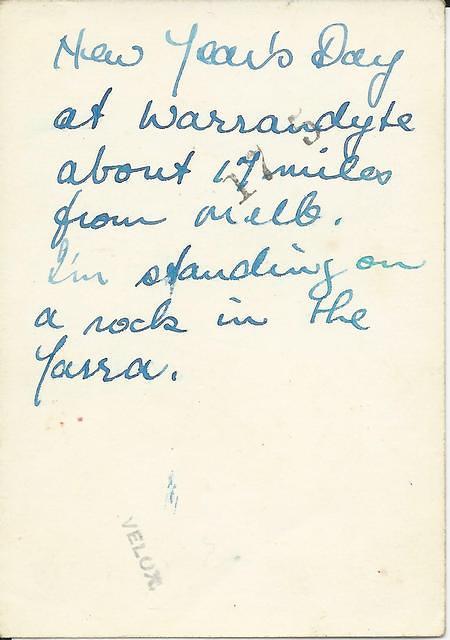 New Year's Day
at Warrandyte
about 17 miles
from Melb.
I'm standing on
a rock in the
Yarra.
VELOX